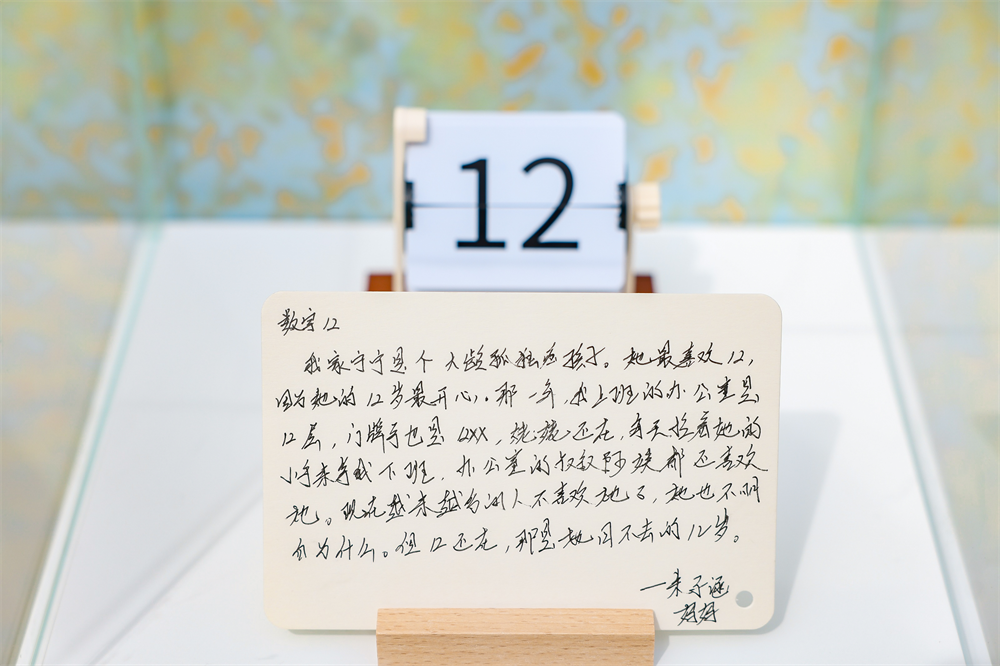 12
数字12
我家宁宁是个大龄孤独症孩子。她最喜欢12,
因为她的12岁最开心。那一年,我上班的办公室是
12层,门牌号也是12XX,姥姥还在,每天拉着她的
小手来等我下班,办公室的叔叔阿姨都还喜欢
她。现在越来越多的人不喜欢她了,她也不明
白为什么。但12还在,那是她回不去的12岁。
一来子涵
妈妈